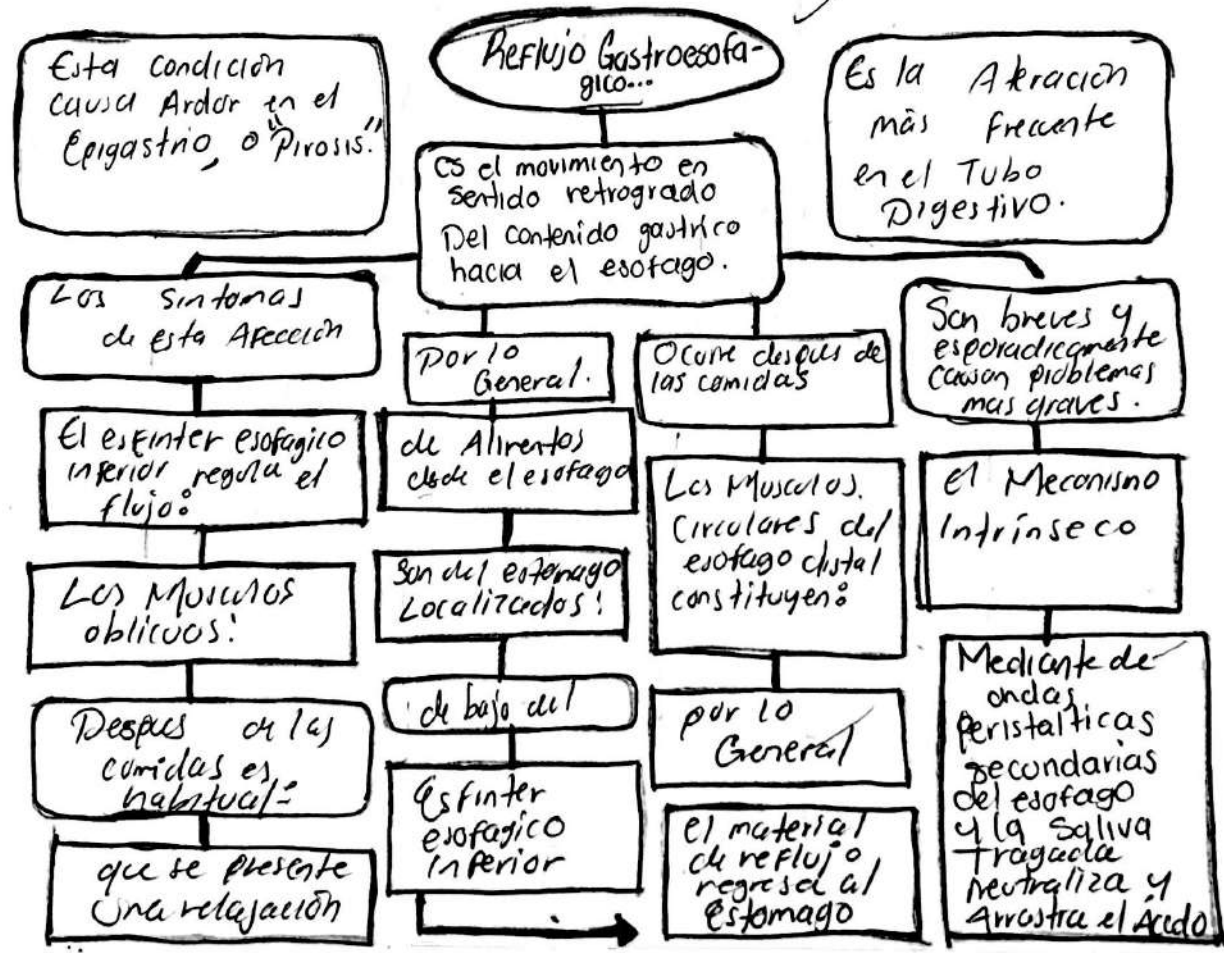 Reflujo Gastroesofa-
gico...
Esta condición
causa Ardor en el
Epigastrio, o "Pirosis."
Es la Alteración
más frecuente
en el Tubo
Digestivo.
es el movimiento en
sentido retrogrado
Del contenido gastrico
hacia el esofago.
Los sintomas
de esta Afección
El esfinter esofagico
inferior regula el
flujo:
Los Musculos
oblicuos:
Despues de las
comidas es
habitual:
que se presente
una relajación
por lo
General.
de Alimentos
desde el esofago
Son del estomago
Localizados:
de bajo del
Esfinter
esofagico
inferior
Ocurre despues de
las comidas
Los Musculos.
Circulares del
esofago distal
constituyen:
por lo
General
el material
de reflujo
regresa al
Estomago
Son breves y
esporadicamente
causan problemas
mas graves.
el Mecanismo
Intrínseco
Mediante de
ondas
peristalticas
secundarias
del esofago
y la Saliva
tragada
neutraliza y
Arrastra el Ácido